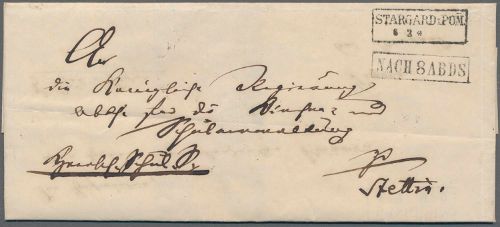 STARGARD i. POM.
NACH 8 ABDS
An
die Königliche Regierung
Abth. für die Kirchen= und
Schulverwaltung
Stettin.